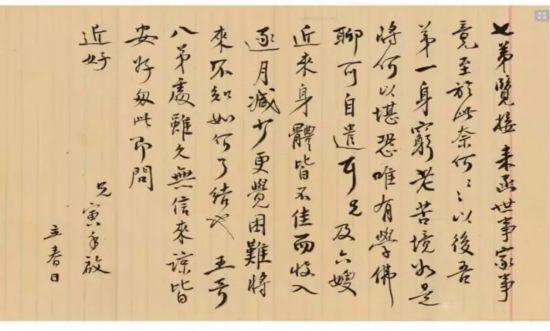 七弟覽接 來函世事家事
竟至於此奈何〻以後吾
弟一身窮老苦境如是
將何以堪恐唯有學佛
聊可自遣耳兄及六嫂
近來身體皆不佳而收入
逐月減少更覺困難將
來不知如何了結也 五哥
八弟處雖久無信來諒皆
安好匆此即問
近好
兄寅恪啟
立春日